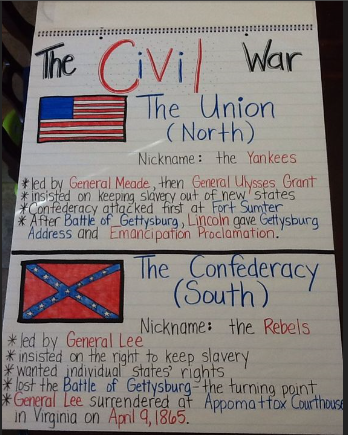 The Civil War
The Union
(North)
Nickname: the Yankees
*led by General Meade, then General Ulysses Grant
*insisted on keeping slavery out of new states
*Confederacy attacked first at Fort Sumter
*After Battle of Gettysburg, Lincoln gave Gettysburg
Address and Emancipation Proclamation.
The Confederacy
(South)
Nickname: the Rebels
*led by General Lee
*insisted on the right to keep slavery
*wanted individual states' rights
*lost the Battle of Gettysburg-the turning point
*General Lee surrendered at Appomattox Courthouse
in Virginia on April 9, 1865.